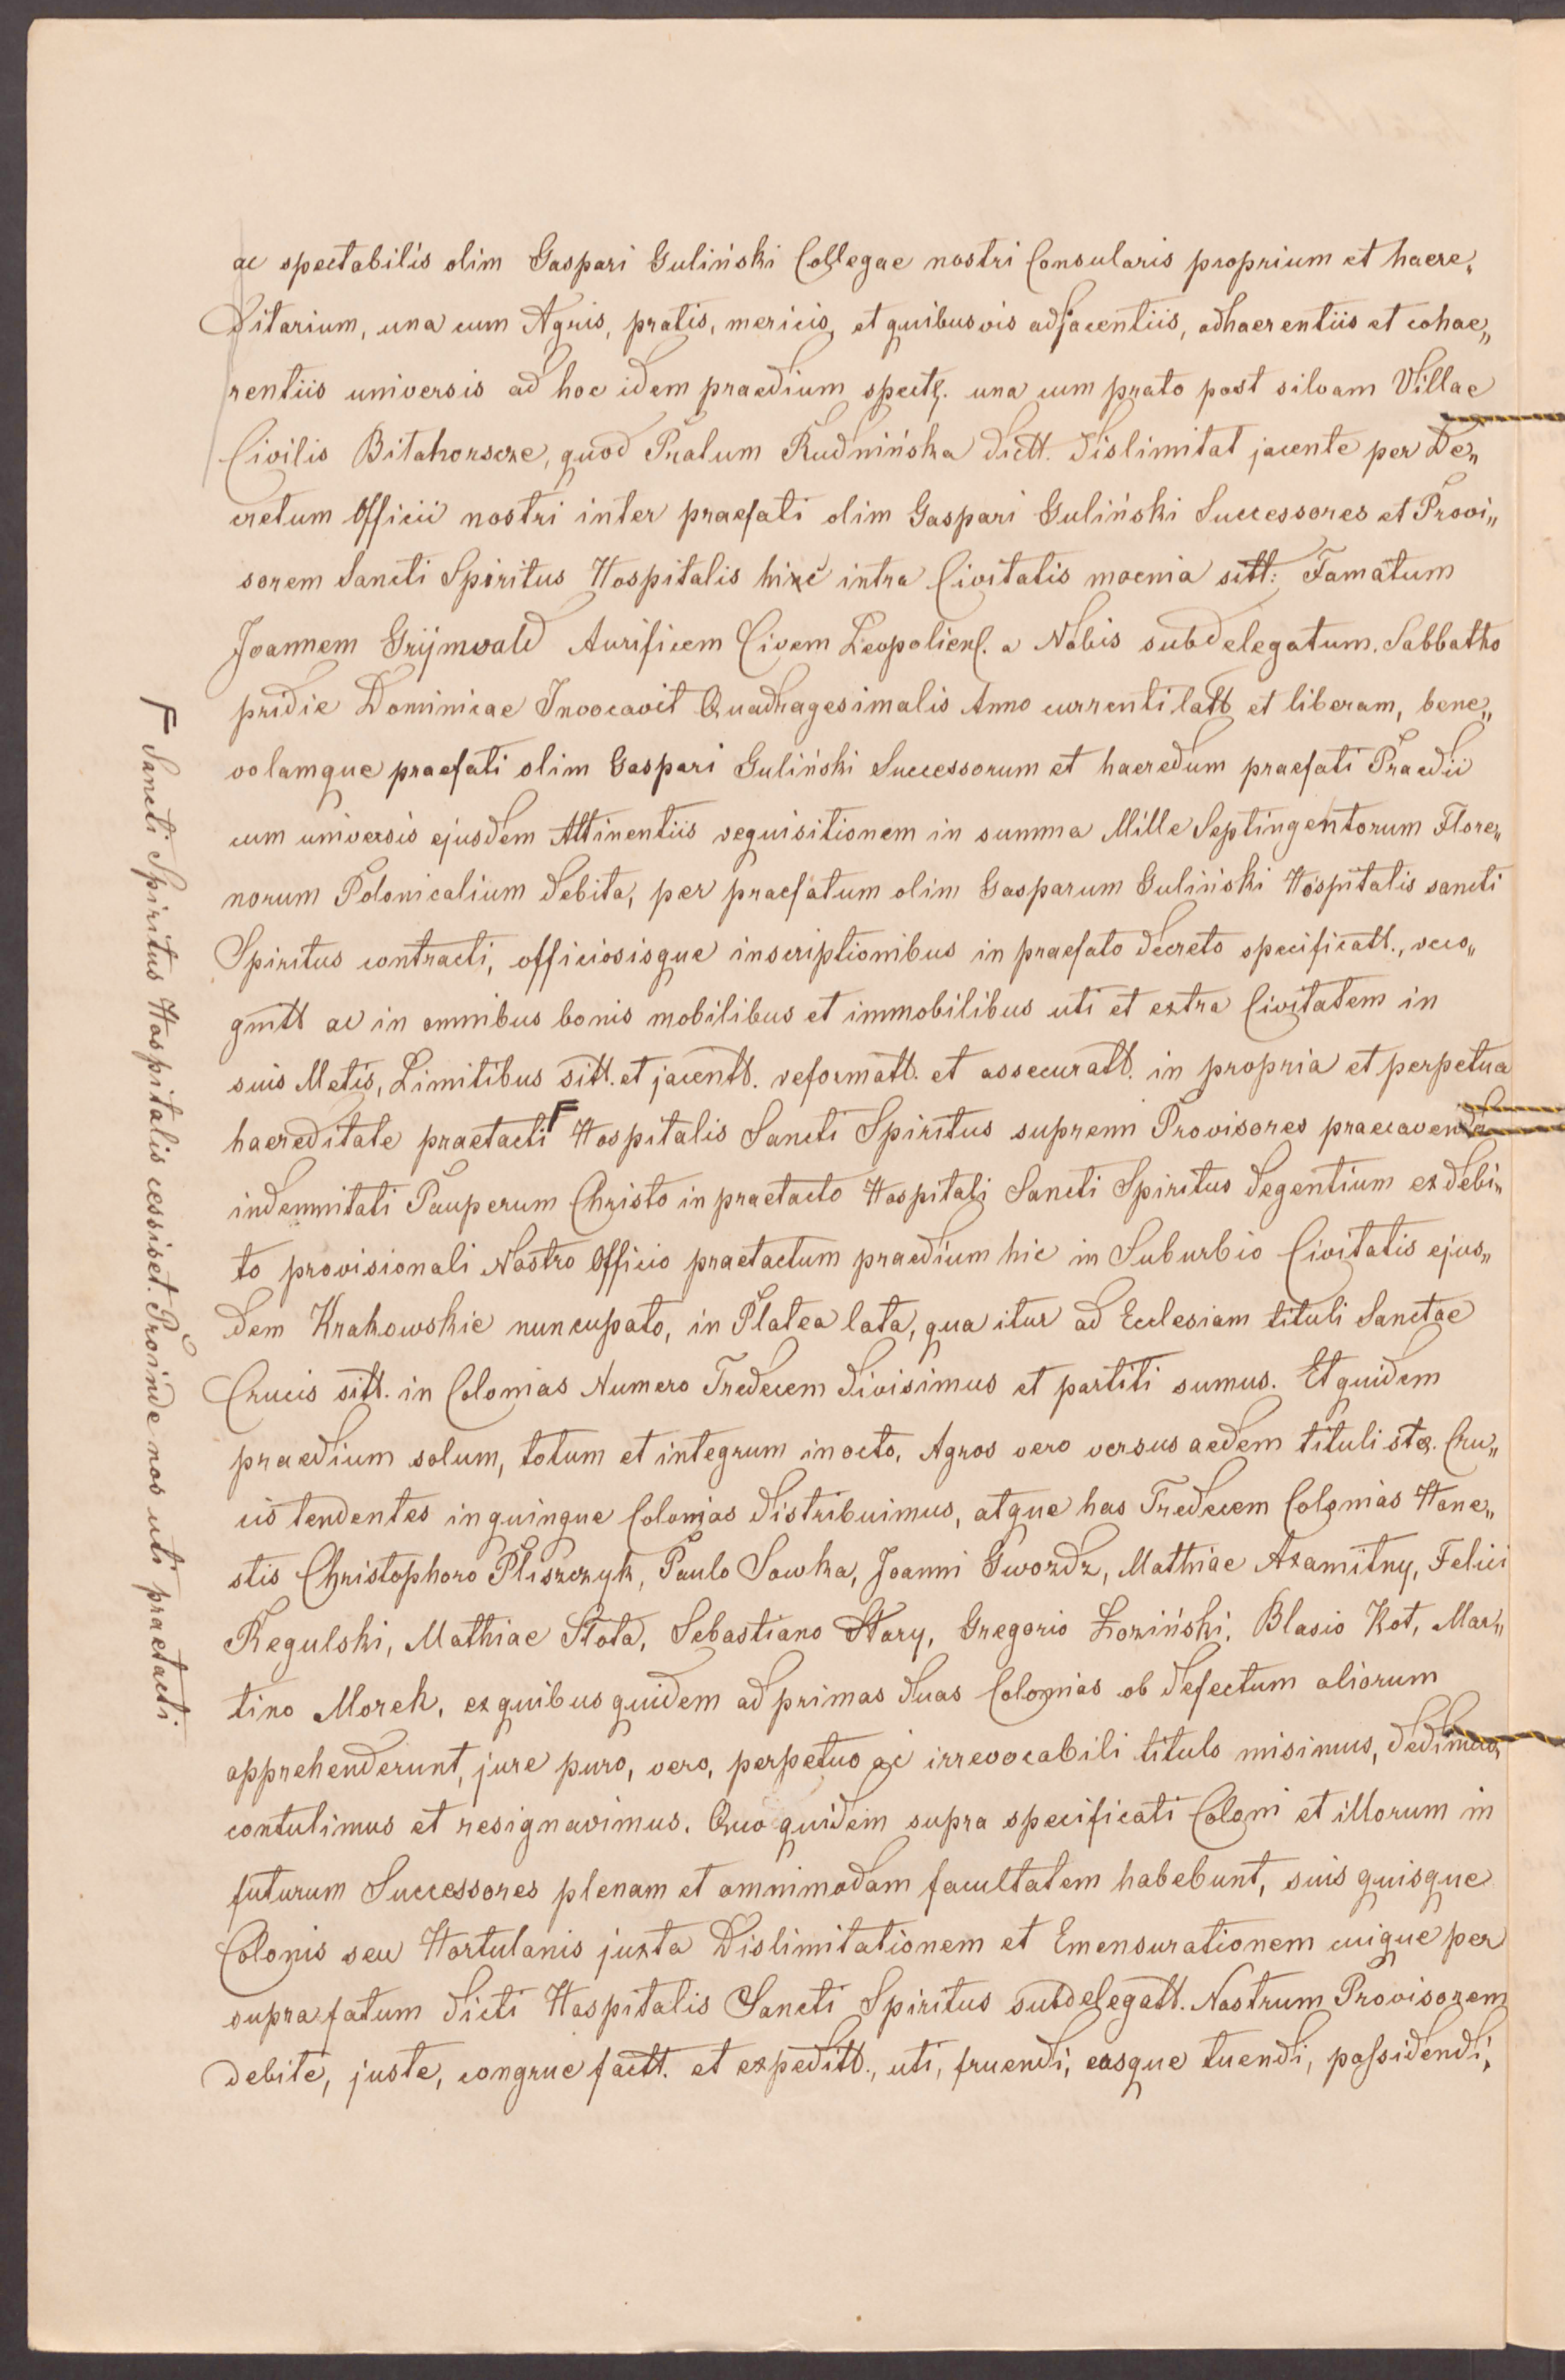 ac spectabilis olim Gaspari Guliński Collegae nostri Consularis proprium et haere„
ditarium, una cum Agris, pratis, mericis, et quibusvis adjacentiis, adhaerentiis et cohae„
rentiis universis ad hoc idem praedium spectt. una cum prato post silvam Villae
Civilis Bitahorscze, quod Pratum Rudnińska dictt. dislimitat jacente per De„
cretum Officii nostri inter praefati olim Gaspari Guliński Successores et Provi„
sorem Sancti Spiritus Hospitalis hic intra Civitatis moenia sitt: Famatum
Joannem Grÿmwald Aurificem Civem Leopolien. a Nobis subdelegatum. Sabbatho
pridie Dominicae Invocavit Quadragesimalis Anno currenti latt et liberam, bene„
volamque praefati olim Gaspari Guliński Successorum et haeredum praefati Praedii
cum universis ejusdem Attinentiis requisitionem in summa Mille Septingentorum Flore„
norum Polonicalium debita, per praefatum olim Gasparum Guliński Hospitalis sancti
Spiritus contracti, officiosisque inscriptionibus in praefato decreto specificatt., reco„
gnitt ac in omnibus bonis mobilibus et immobilibus uti et extra Civitatem in
suis Metis, Limitibus sitt. et jacentt. reformatt. et assecuratt. in propria et perpetua
haereditate praetacti Γ Hospitalis Sancti Spiritus supremi Provisores praecavendo
indemnitati Pauperum Christo in praetacto Hospitali Sancti Spiritus degentium ex debi„
to provisionali Nostro Officio praetactum praedium hic in Suburbio Civitatis ejus„
dem Krakowskie nuncupato, in Platea lata, qua itur ad Ecclesiam tituli Sanctae
Crucis sitt. in Colonias Numero Tredecem divisimus et partiti sumus. Et quidem
praedium solum, totum et integrum in octo, Agros vero versus aedem tituli ste. Cru„
cis tendentes in quinque Colonias distribuimus, atque has Tredecem Colonias Hone„
stis Christophoro Pliszczyk, Paulo Sowka, Joanni Gwozdz, Mathiae Axamitny, Felici
Regulski, Mathiae Stota, Sebastiano Stary, Gregorio Łoziński, Blasio Kot, Mar„
tino Morek, ex quibus quidem ad primas duas Colonias ob defectum aliorum
apprehenderunt, jure puro, vero, perpetuo ac irrevocabili titulo misimus, dedimus,
contulimus et resignavimus. Quo quidem supra specificati Coloni et illorum in
futurum Successores plenam et omnimodam facultatem habebunt, suis quisque
Colonis seu Hortulanis juxta Dislimitationem et Emensurationem cuique per
suprafatum dicti Hospitalis Sancti Spiritus subdelegatt. Nostrum Provisorem
debite, juste, congrue factt. et expeditt., uti, fruendi, easque tuendi, possidendi,
Γ Sancti Spiritus Hospitalis cessisset. Proinde nos uti praetacti